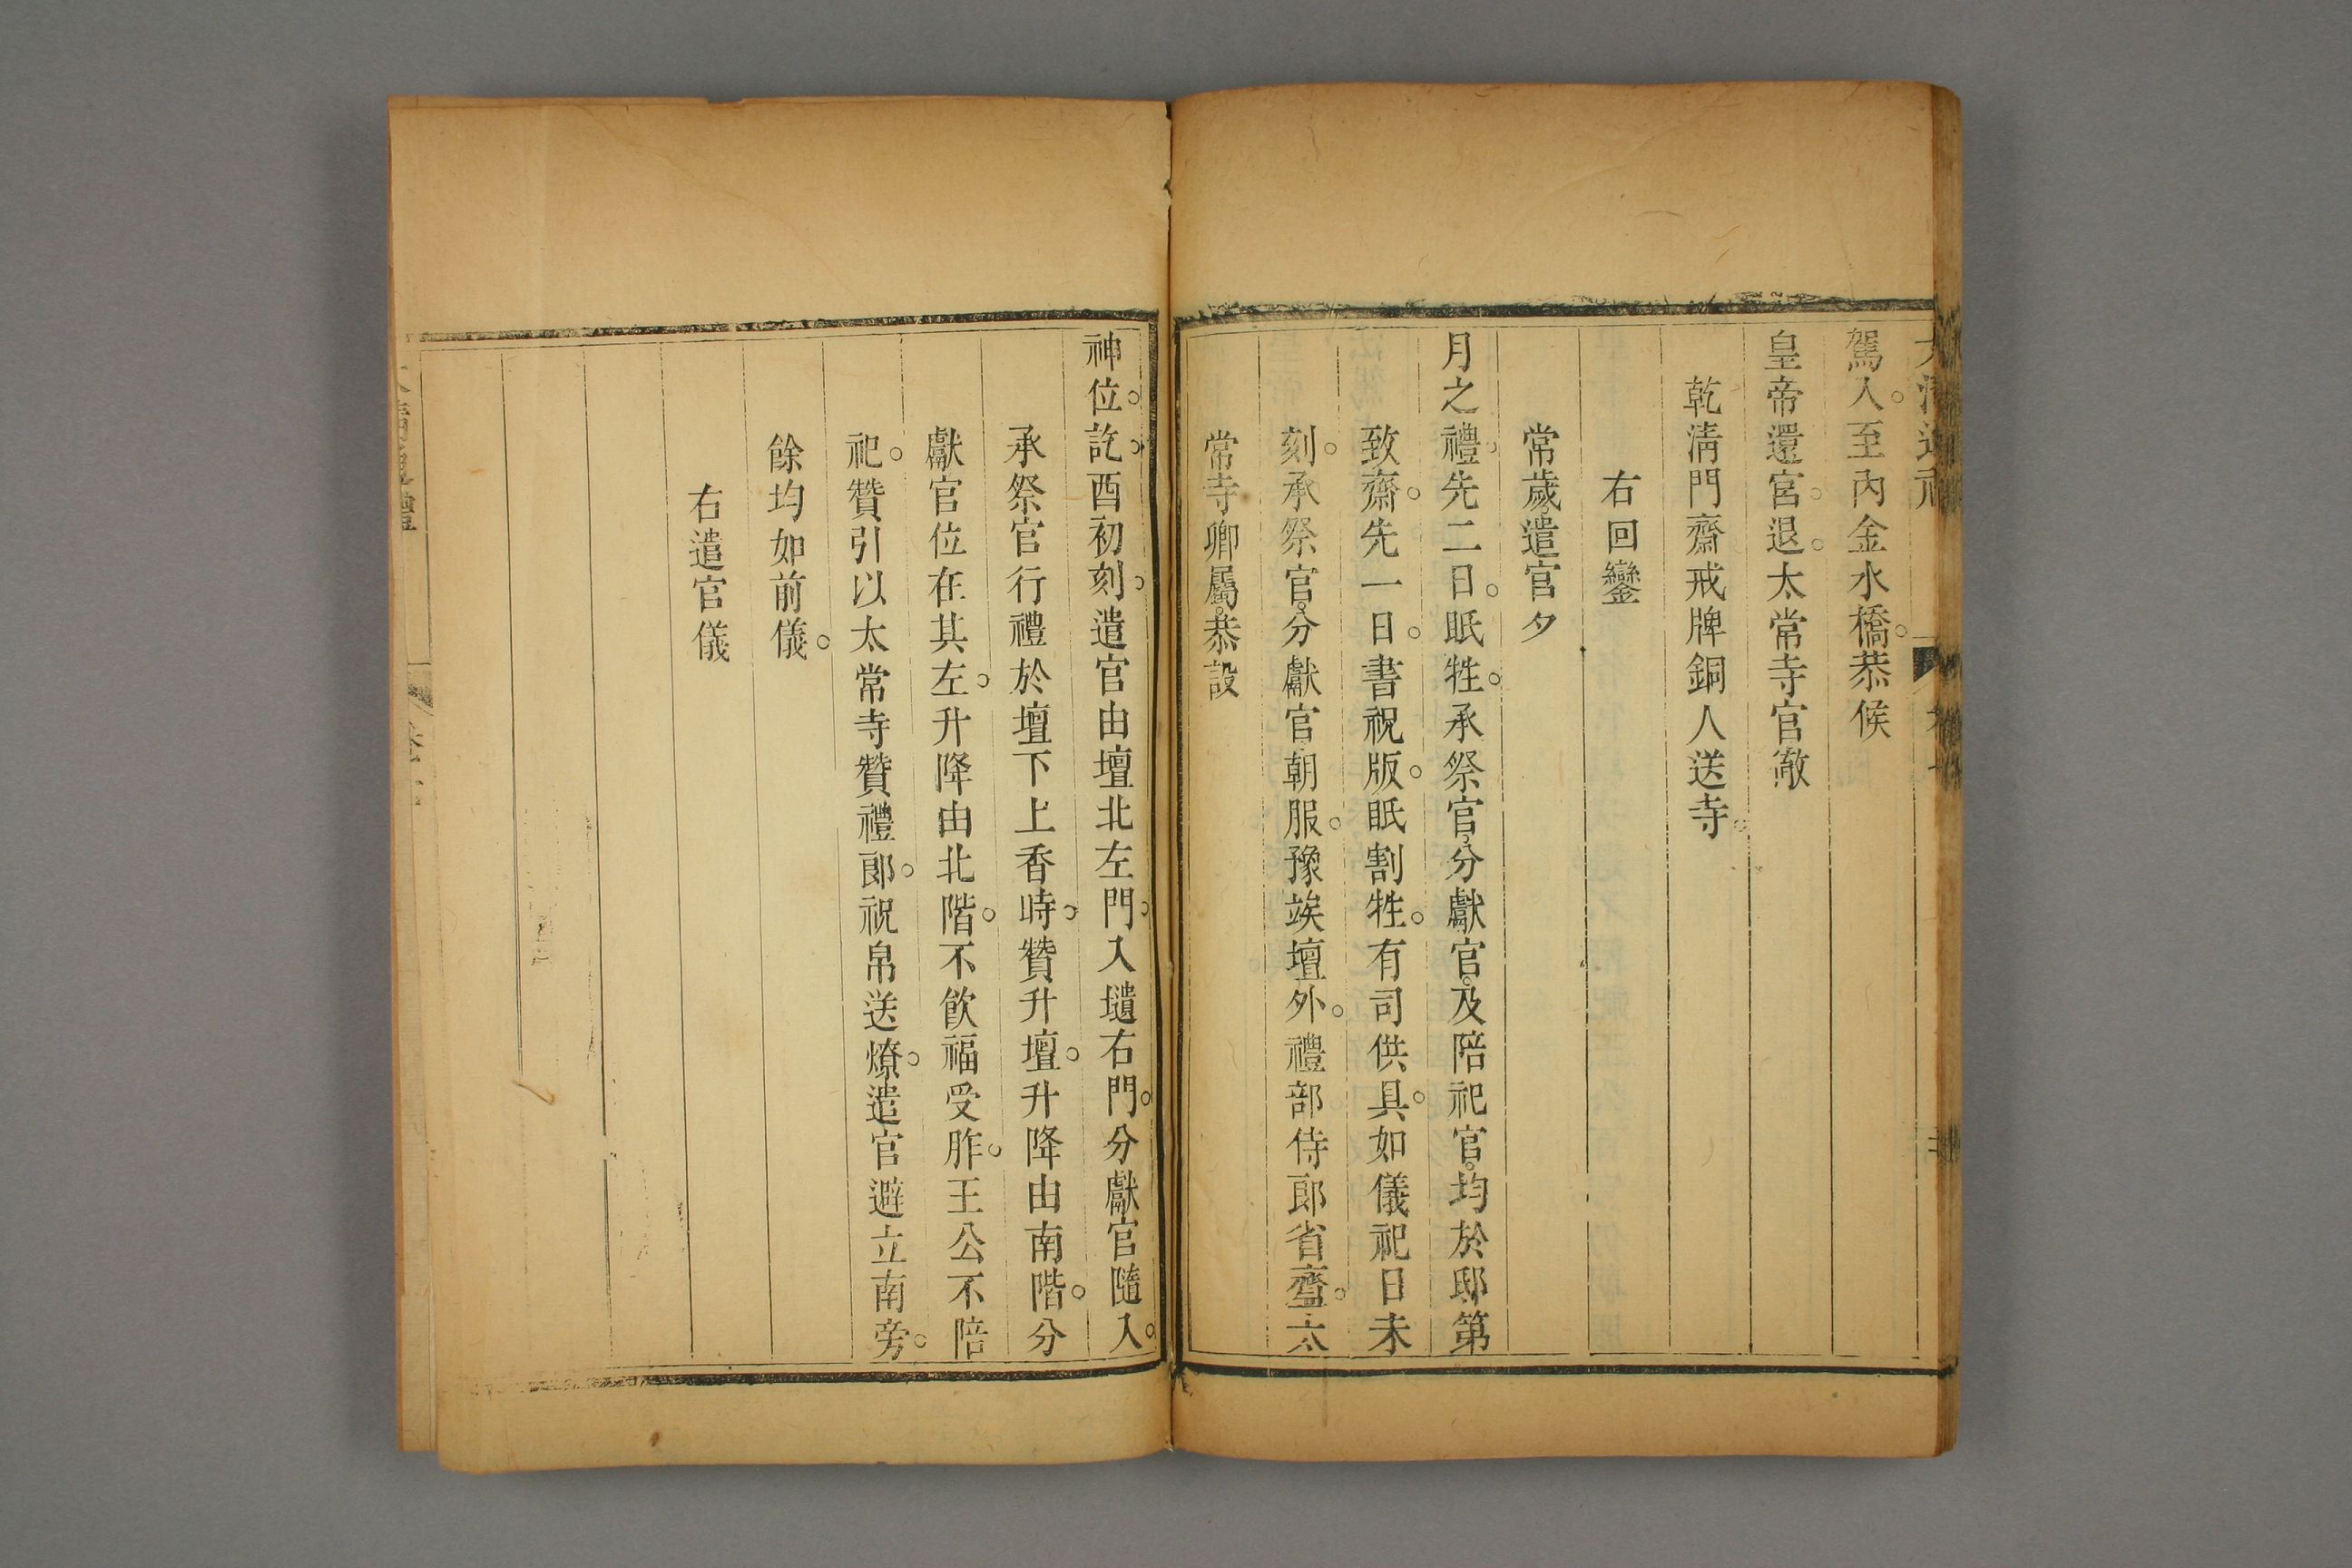 駕入。至內金水橋。恭候
皇帝還宮。退。太常寺官徹
乾淸門齋戒牌銅人送寺。
右回鑾
常歲。遣官夕
月之禮。先二日。眡牲。承祭官。分獻官。及陪祀官。均於邸第
致齋。先一日。書祝版。眡割牲。有司供具。如儀祀日未
刻。承祭官。分獻官朝服。豫竢壇外。禮部侍郎省齍。太
常寺卿屬。恭設
神位。訖。酉初刻。遣官由壇北左門。入壝右門。分獻官隨入。
承祭官行禮於壇下上香時。贊升壇。升降由南階。分
獻官位在其左。升降由北階。不飮福受胙。王公不陪
祀。贊引以太常寺贊禮郎。祝帛送燎。遣官避立南旁。
餘均如前儀。
右遣官儀